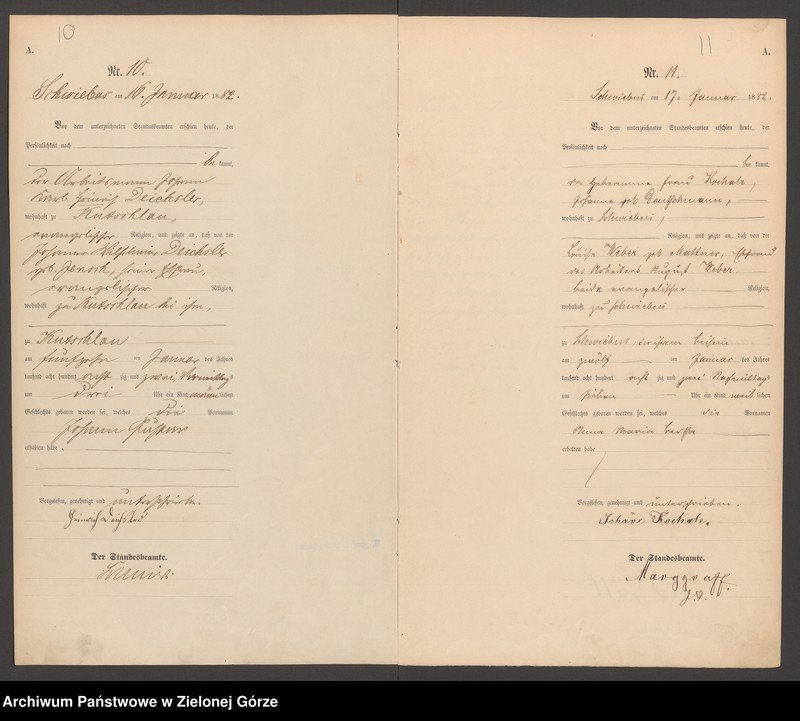 10
A.
Nr. 10.
Schwiebus am 16. Januar 1882.
Vor dem unterzeichneten Standesbeamten erschien heute, der
Persönlichkeit nach
be kannt,
der Arbeitsmann Johann
Karl Heinrich Deichsler,
wohnhaft zu Kutschlau,
evangelischer Religion, und zeigte an, daß von der
Johanne Wilhelmine Deichsler
geb. Jensch, seiner Ehefrau,
evangelischer Religion,
wohnhaft zu Kutschlau bei ihm,
zu Kutschlau
am fünfzehn ten Januar des Jahres
tausend acht hundert acht zig und zwei Vormittags
um drei Uhr ein Kind männlichen
Geschlechts geboren worden sei, welches die Vornamen
Johann Gustav
erhalten habe.
Vorgelesen, genehmigt und unterschrieben.
Heinrich Deichsler
Der Standesbeamte.
11
A.
Nr. 11.
Schwiebus am 17. Januar 1882.
Vor dem unterzeichneten Standesbeamten erschien heute, der
Persönlichkeit nach
be kannt,
die Hebamme Frau Kochale,
Johanne geb.
wohnhaft zu Schwiebus,
Religion, und zeigte an, daß von der
Louise Weber geb. Mattner, Ehefrau
des Arbeiters August Weber
beide evangelischer Religion,
wohnhaft zu Schwiebus
zu Schwiebus, in ihrem Beisein
am zwölf ten Januar des Jahres
tausend acht hundert acht zig und zwei Nachmittags
um sieben Uhr ein Kind weib lichen
Geschlechts geboren worden sei, welches die Vornamen
Anna Maria Bertha
erhalten habe
Vorgelesen, genehmigt und unterschrieben.
Kochale.
Der Standesbeamte.
Marggraff.
J. V.
Archiwum Państwowe w Zielonej Górze